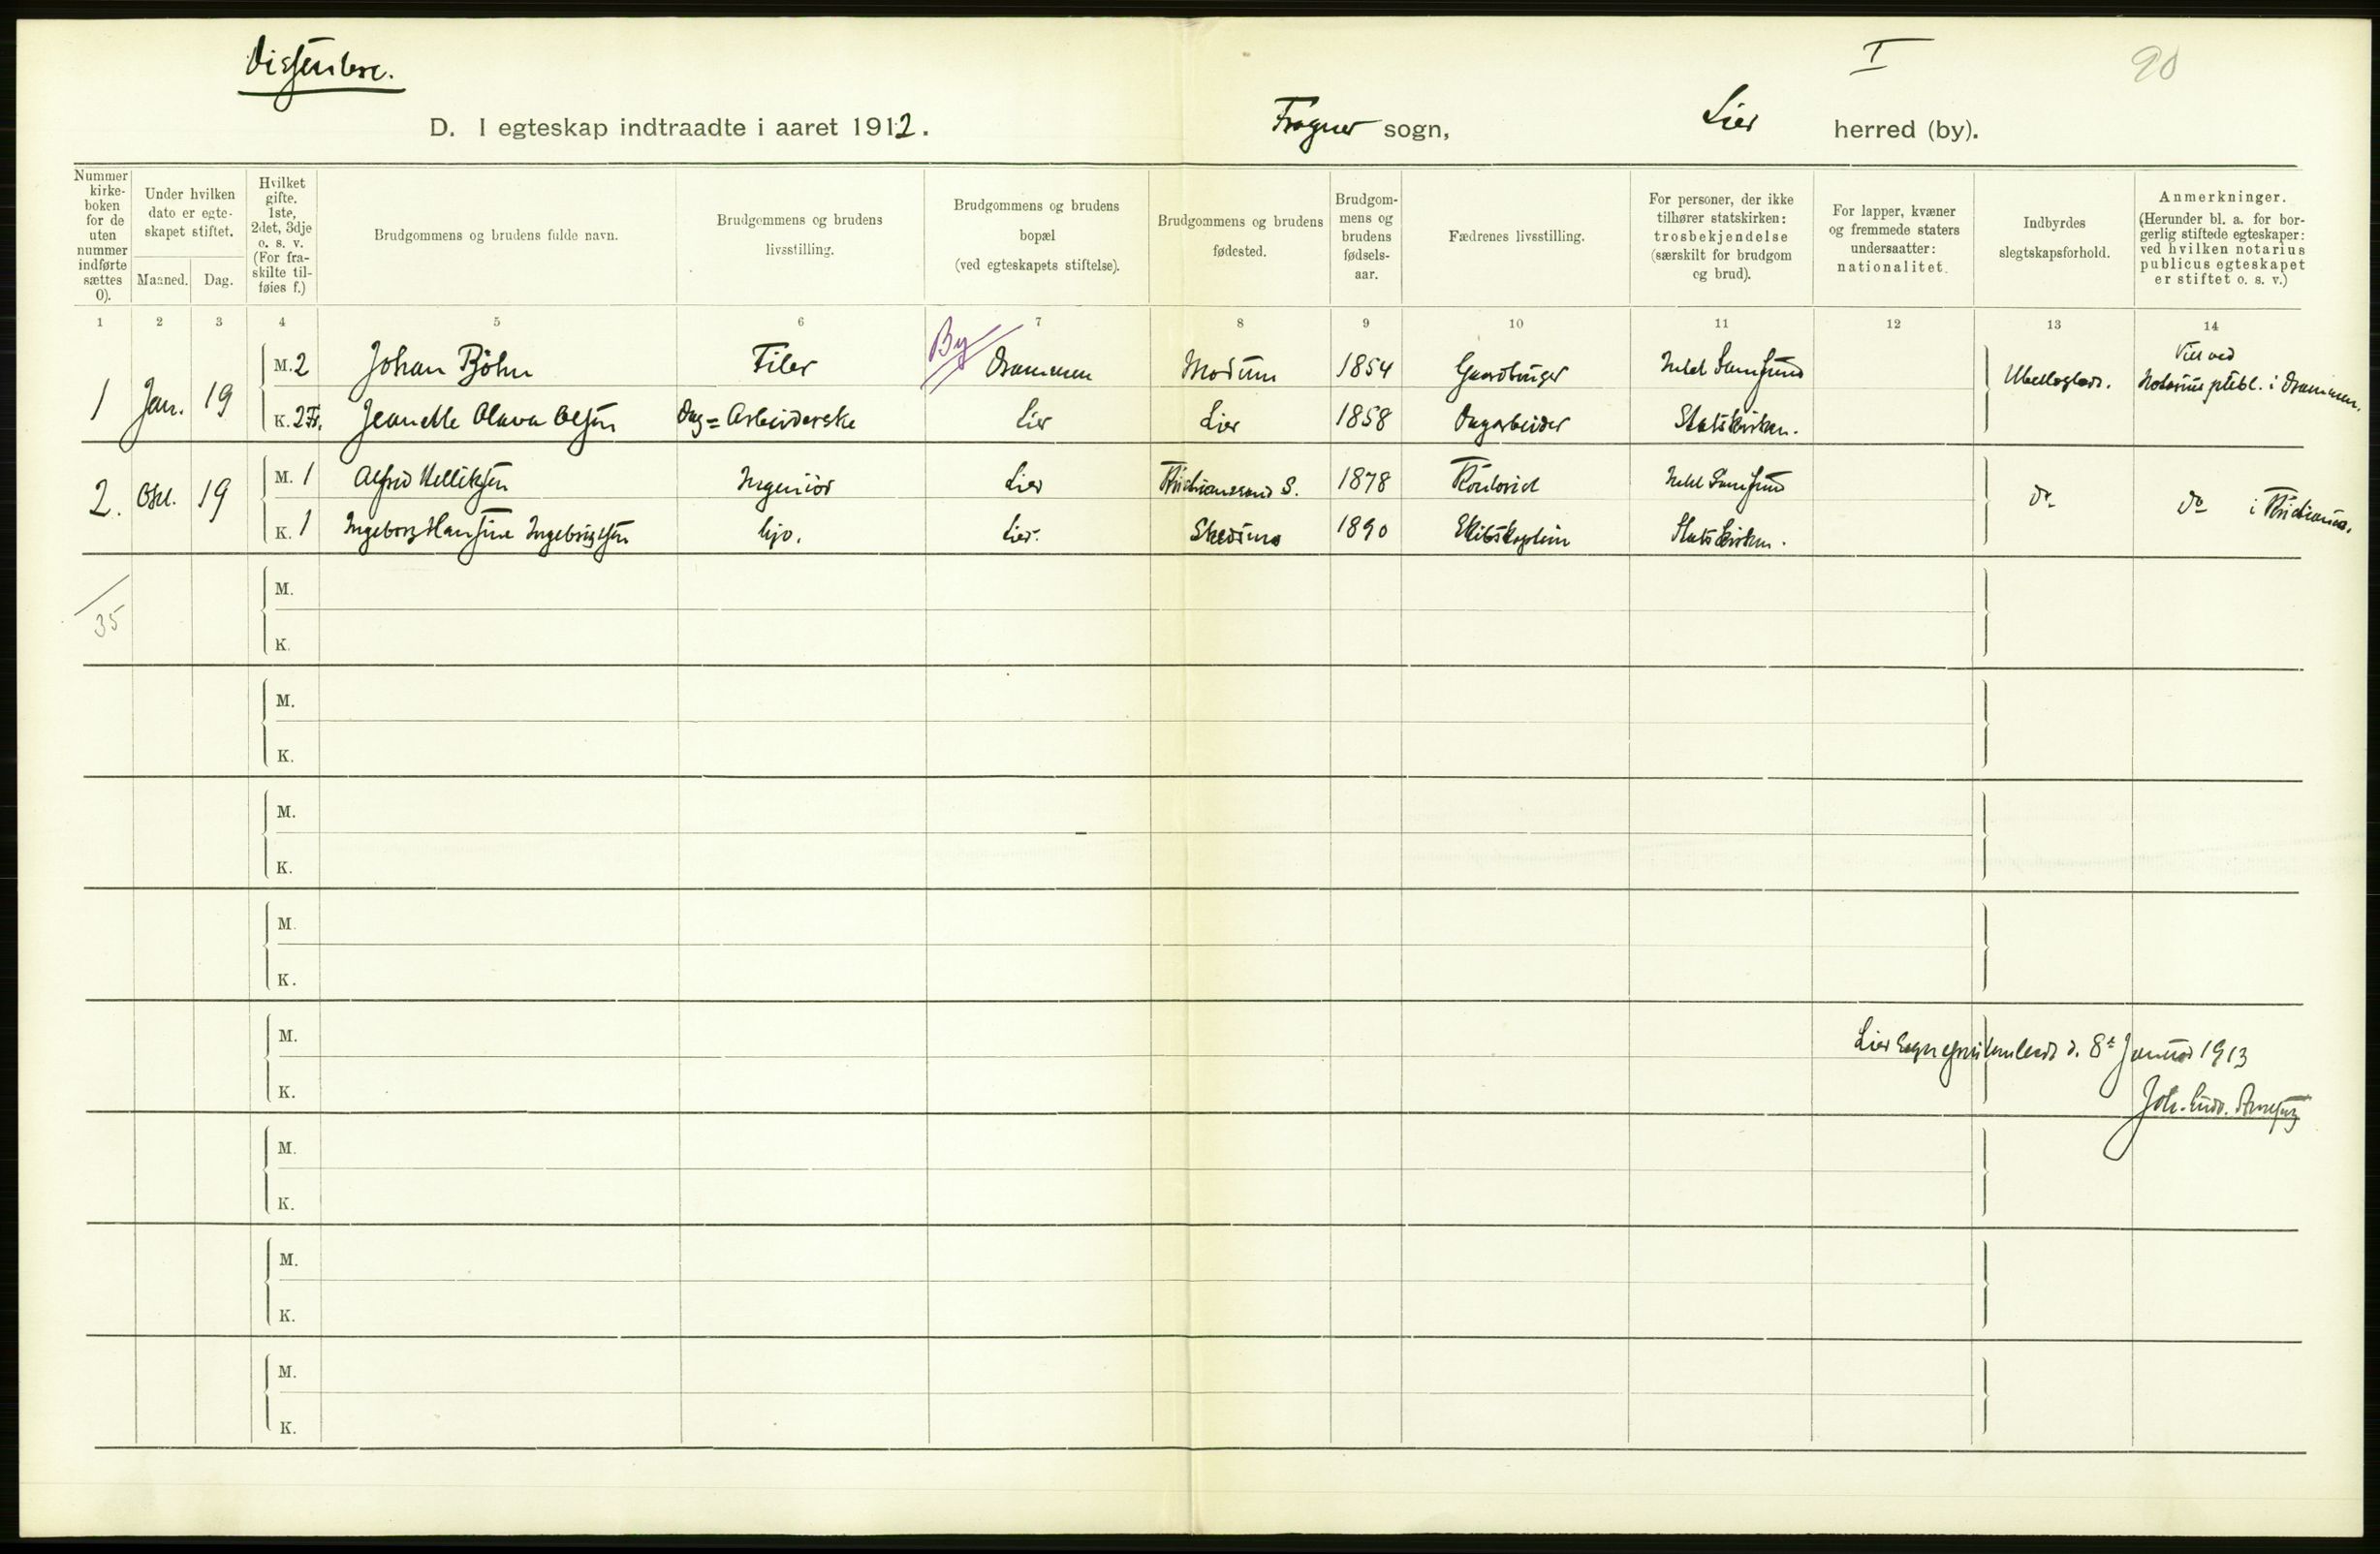 Dissentere.
I
90
D. I egteskap indtraadte i aaret 1912.
Frogner sogn,
Lier herred (by).
Nummer kirke-boken for de uten nummer indførte sættes 0).
Under hvilken dato er egte-skapet stiftet.
Maaned.
Dag.
Hvilket gifte. 1ste, 2det, 3dje o. s. v. (For fra-skilte til-føies f.)
Brudgommens og brudens fulde navn.
Brudgommens og brudens livsstilling.
Brudgommens og brudens bopæl (ved egteskapets stiftelse).
Brudgommens og brudens fødested.
Brudgom-mens og brudens fødsels-aar.
Fædrenes livsstilling.
For personer, der ikke tilhører statskirken: trosbekjendelse (særskilt for brudgom og brud).
For lapper, kvæner og fremmede staters undersaatter: nationalitet.
Indbyrdes slegtskapsforhold.
Anmerkninger. (Herunder bl. a. for bor-gerlig stiftede egteskaper: ved hvilken notarius publicus egteskapet er stiftet o. s. v.)
1 2 3 4 5 6 7 8 9 10 11 12 13 14
1 Jan. 19
M. 2 Johan Böhn Filer By Drammen Modum 1854 Gaardbruger Ubeslegtede. Viet ved Notarius publ. i Drammen.
K. 2 Fr. Jeanette Olava Olsen Dag=Arbeiderske Lier Lier 1858 Dagarbeider Statskirken.
2. Okt. 19
M. 1 Alfred Kelliksen Ingeniör Lier Kristianssand S. 1878 do do i Kristiania.
K. 1 Ingeborg Hansine Ingebrigtsen Lier. Skedsmo 1890 Skibskaptein Statskirken.
35
M.
K.
M.
K.
M.
K.
M.
K.
M.
K.
Lier Sogneprestembede d. 8de Januar 1913
Joh.
M.
K.
M.
K.
M.
K.